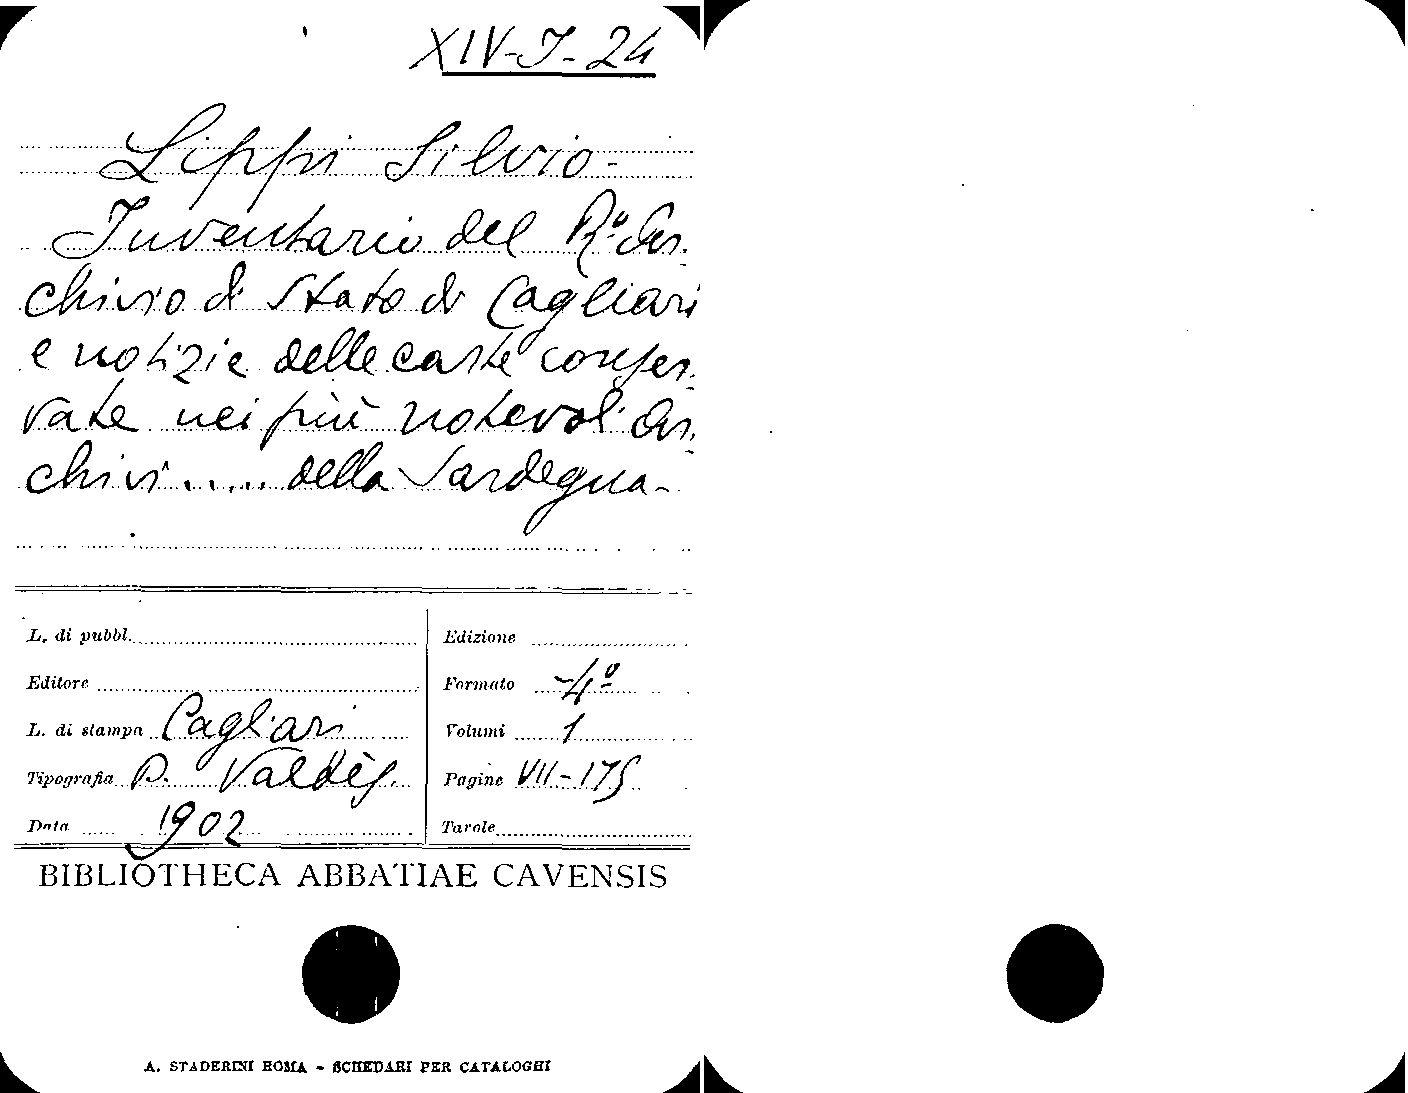 XIV-J-24
Lippi Silvio-
Inventario del R.º Ar-
chivio di Stato di Cagliari
e notizie delle carte conser-
vate nei più notevoli Ar-
chivi..... della Sardegna-
L. di pubbl.
Edizione
Editore
Formato -4º
L. di stampa Cagliari
Volumi 1
Tipografia P. Valdès.
Pagine VII-175
Data 1902
Tavole
BIBLIOTHECA ABBATIAE CAVENSIS
A. STADERINI ROMA - SCHEDARI PER CATALOGHI